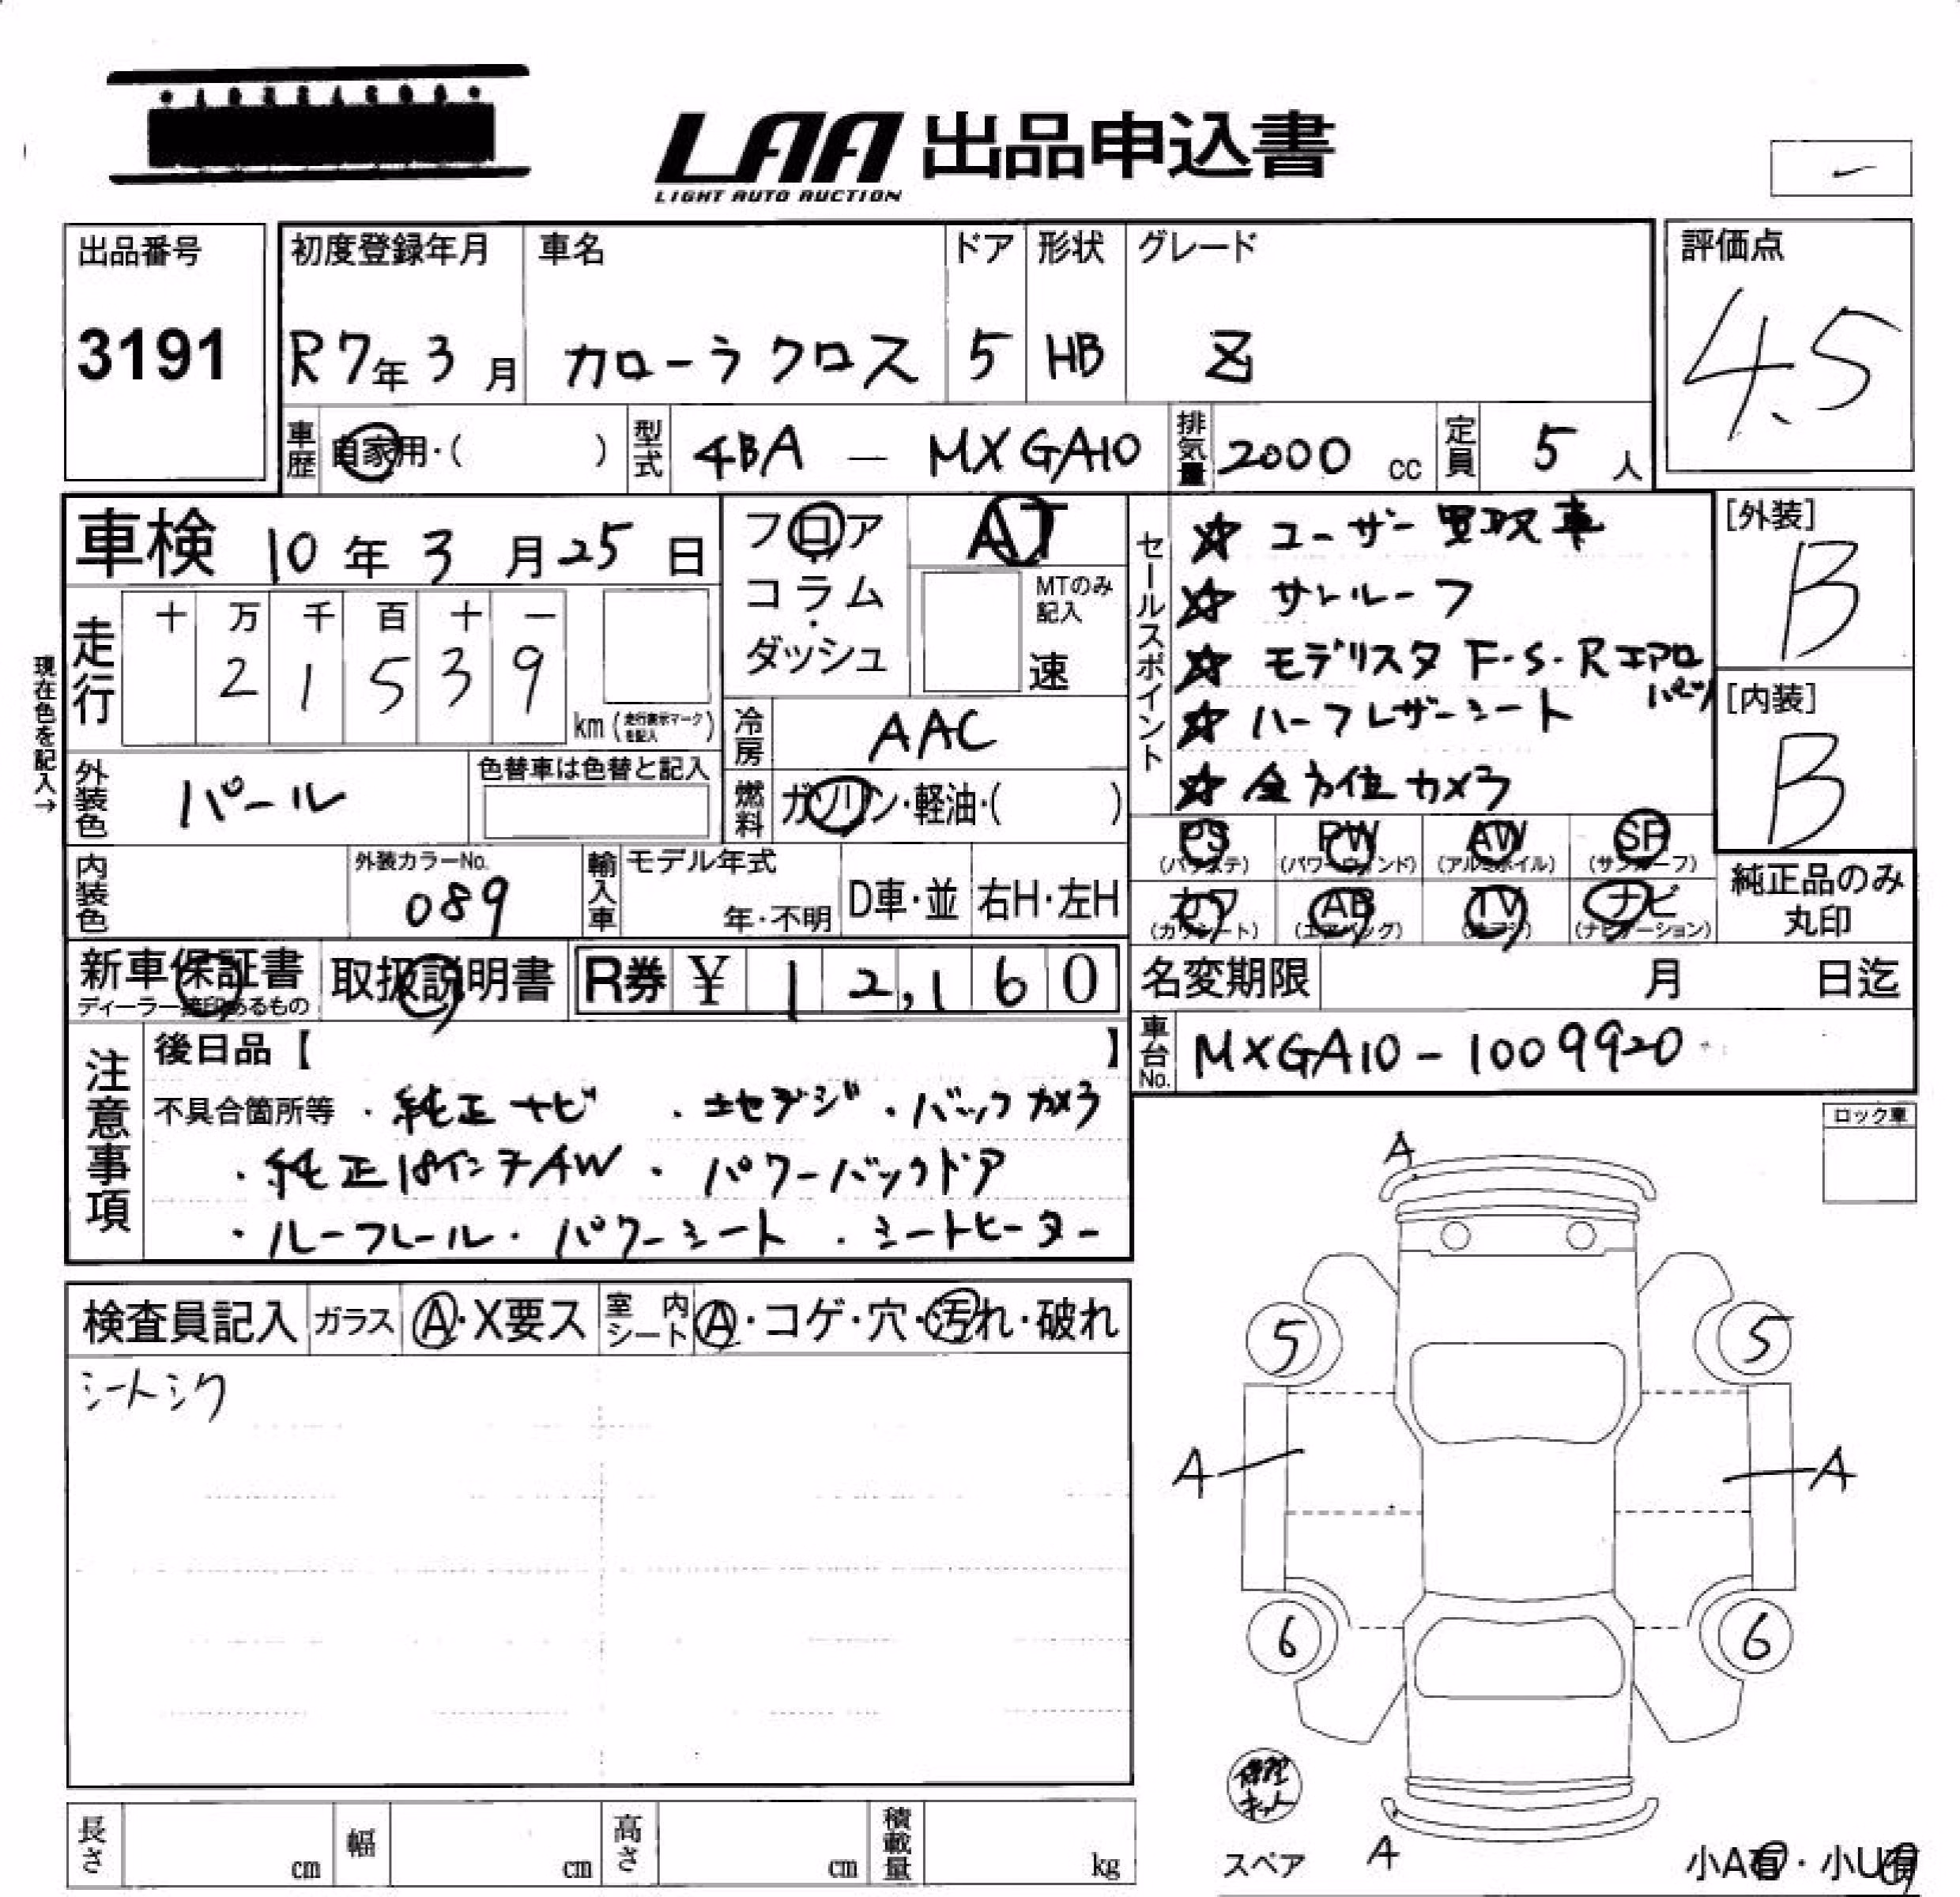 LAA 出品申込書
LIGHT AUTO AUCTION
出品番号
3191
初度登録年月 車名 ドア 形状 グレード
R7年3月 カローラクロス 5 HB Z
評価点
4.5
車歴 自家用・( ) 型式 4BA - MXGA10 排気量 2000 cc 定員 5 人
車検 10年3月25日
フロア AT
コラム
ダッシュ
MTのみ
記入
速
走行 十 万 千 百 十 一
2 1 5 3 9
km (走行表示マークを記入)
現在色を記入→
冷房 AAC
外装色 パール 色替車は色替と記入
燃料 ガソリン・軽油・( )
内装色 外装カラーNo.
089
輸入車 モデル年式
年・不明 D車・並 右H・左H
セールスポイント
☆ ユーザー買取車
☆ サンルーフ
☆ モデリスタ F・S・Rエアロ
パーツ
☆ ハーフレザーシート
☆ 全方位カメラ
[外装]
B
[内装]
B
PS PW AW SF
(パワステ) (パワーウィンド) (アルミホイル) (サンルーフ)
カワ AB TV ナビ
(カワシート) (エアバッグ) (ナビゲーション)
純正品のみ
丸印
新車保証書 取扱説明書 R券 ¥ 12,160
名変期限 月 日迄
車台No. MXGA10-1009920
注意事項
後日品【 】
不具合箇所等 ・純正ナビ ・地デジ ・バックカメラ
・純正18インチAW ・パワーバックドア
・ルーフレール ・パワーシート ・シートヒーター
ロック車
検査員記入 ガラス A・X要ス 室内シート A・コゲ・穴・汚れ・破れ
シートシワ
A
5 5
A A
6 6
A
スペア
小A有・小U有
長さ cm 幅 cm 高さ cm 積載量 kg